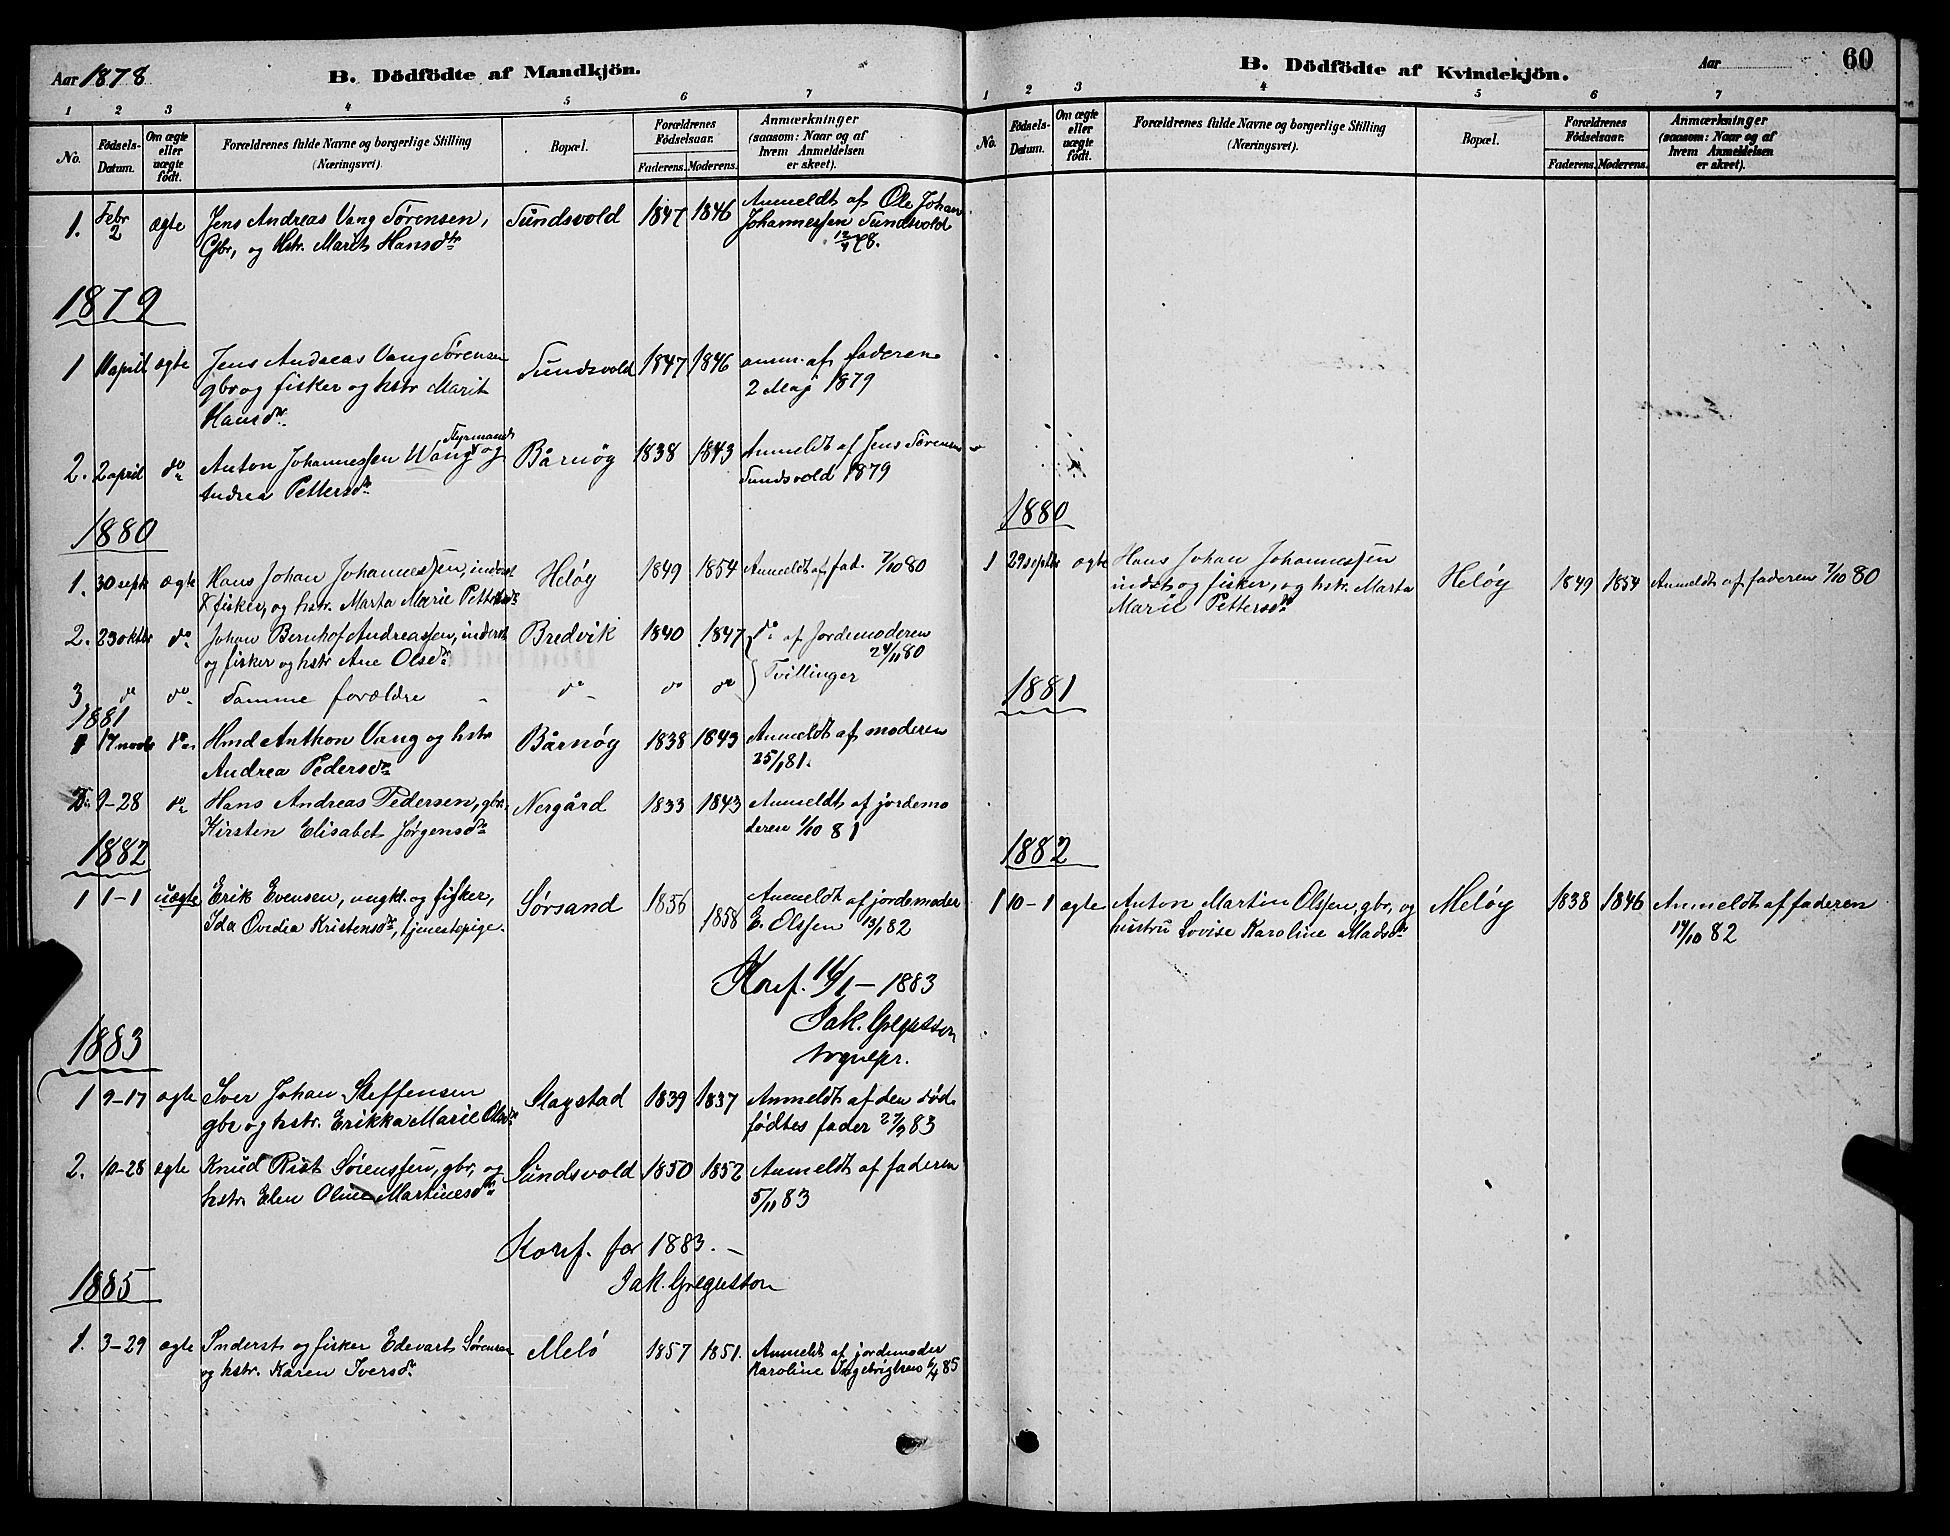 Aar 1878
B. Dödfödte af Mandkjön.
1 2 3 4 5 6 7
No.
Födsels-
Datum.
Om ægte
eller
uægte
födt.
Forældrenes fulde Navne og borgerlige Stilling
(Næringsvei).
Bopæl.
Forældrenes
Födselsaar.
Faderens. Moderens.
Anmærkninger
(saasom: Naar og af
hvem Anmeldelsen
er skeet).
1. Febr 2 ægte Jens Andreas Vang Sørensen, Sundsvold 1847 1846 Anmeldt af Ole Johan
Gbr, og Hstr. Marit Hansdtr Johannessen Sundsvold
12/4 78.
1879
1 11 april ægte Jens Andreas Vang Sørensen Sundsvold 1847 1846 anm. af faderen
gbr og fisker og hstr Marit 2 Maj 1879
Hansdr.
Styrmand
2. 2 april do Anton Johannessen Wang og Bårnøy 1838 1843 Anmeldt af Jens Sørensen
Andrea Pettersdr Sundsvold 1879
1880
1. 30 sept ægte Hans Johan Johannessen, inderst Heløy 1849 1854 Anmeldt af fad. 7/10 80
& fisker, og hstr. Marta Marie Pettersdr
2. 23 oktbr do Johan Bernhof Andreassen, inderst Bredvik 1840 1847 do af Jordemoderen
og fisker og hstr Ane Olsdr. 24/11 80
3 do do Samme forældre do do do Tvillinger
1881
1 17 novbr do Hmd Anthon Vang og hstr Bårnøy 1838 1843 Anmeldt af moderen
Andrea Pedersdr 25/1 81.
2. 9-28 do Hans Andreas Pedersen, gbr, Nergård 1833 1843 Anmeldt af jordemo
Kirsten Elisabet Jørgensdr deren 1/10 81
1882
1 1-1 uægte Erik Evensen, ungkl. og fisker, Sørsand 1856 1858 Anmeldt af jordemoder
Ida Ovedia Kristensdr, tjenestepige. E. Olssen 13/1 82
Konf. 16/1 - 1883
Jak. Gregusson
sognepr.
1883
1 9-17 ægte Iver Johan Steffensen Slagstad 1839 1837 Anmeldt af den død-
gbr og hstr. Erikka Marie Olsdr fødtes fader 23/9 83
2. 10-28 ægte Knud Rist Sørenssen, gbr, og Sundsvold 1850 1852 Anmeldt af faderen
hstr. Elen Oline Martinesdr 5/11 83
Konf. for 1883. -
Jak. Gregusson
1885
1. 3-29 ægte Inderst og fisker Edevart Sørensen Melö 1857 1851. Anmeldt af jordemoder
og hstr. Karen Iversdr. Karoline Ingebrigtsen 6/4 85
B. Dödfödte af Kvindekjön.
Aar
60
1 2 3 4 5 6 7
No.
Födsels-
Datum.
Om ægte
eller
uægte
födt.
Forældrenes fulde Navne og borgerlige Stilling
(Næringsvei).
Bopæl.
Forældrenes
Födselsaar.
Faderens. Moderens.
Anmærkninger
(saasom: Naar og af
hvem Anmeldelsen
er skeet).
1880
1 29 septbr ægte Hans Johan Johannessen Heløy 1849 1854 Anmeldt af faderen 7/10 80
indst og fisker, og hstr. Marta
Marie Pettersdr
1881
1882
1 10-1 ægte Anton Martin Olssen, gbr, og Meløy 1838 1846 Anmeldt af faderen
hustru Lovise Karoline Madsdr 14/10 82